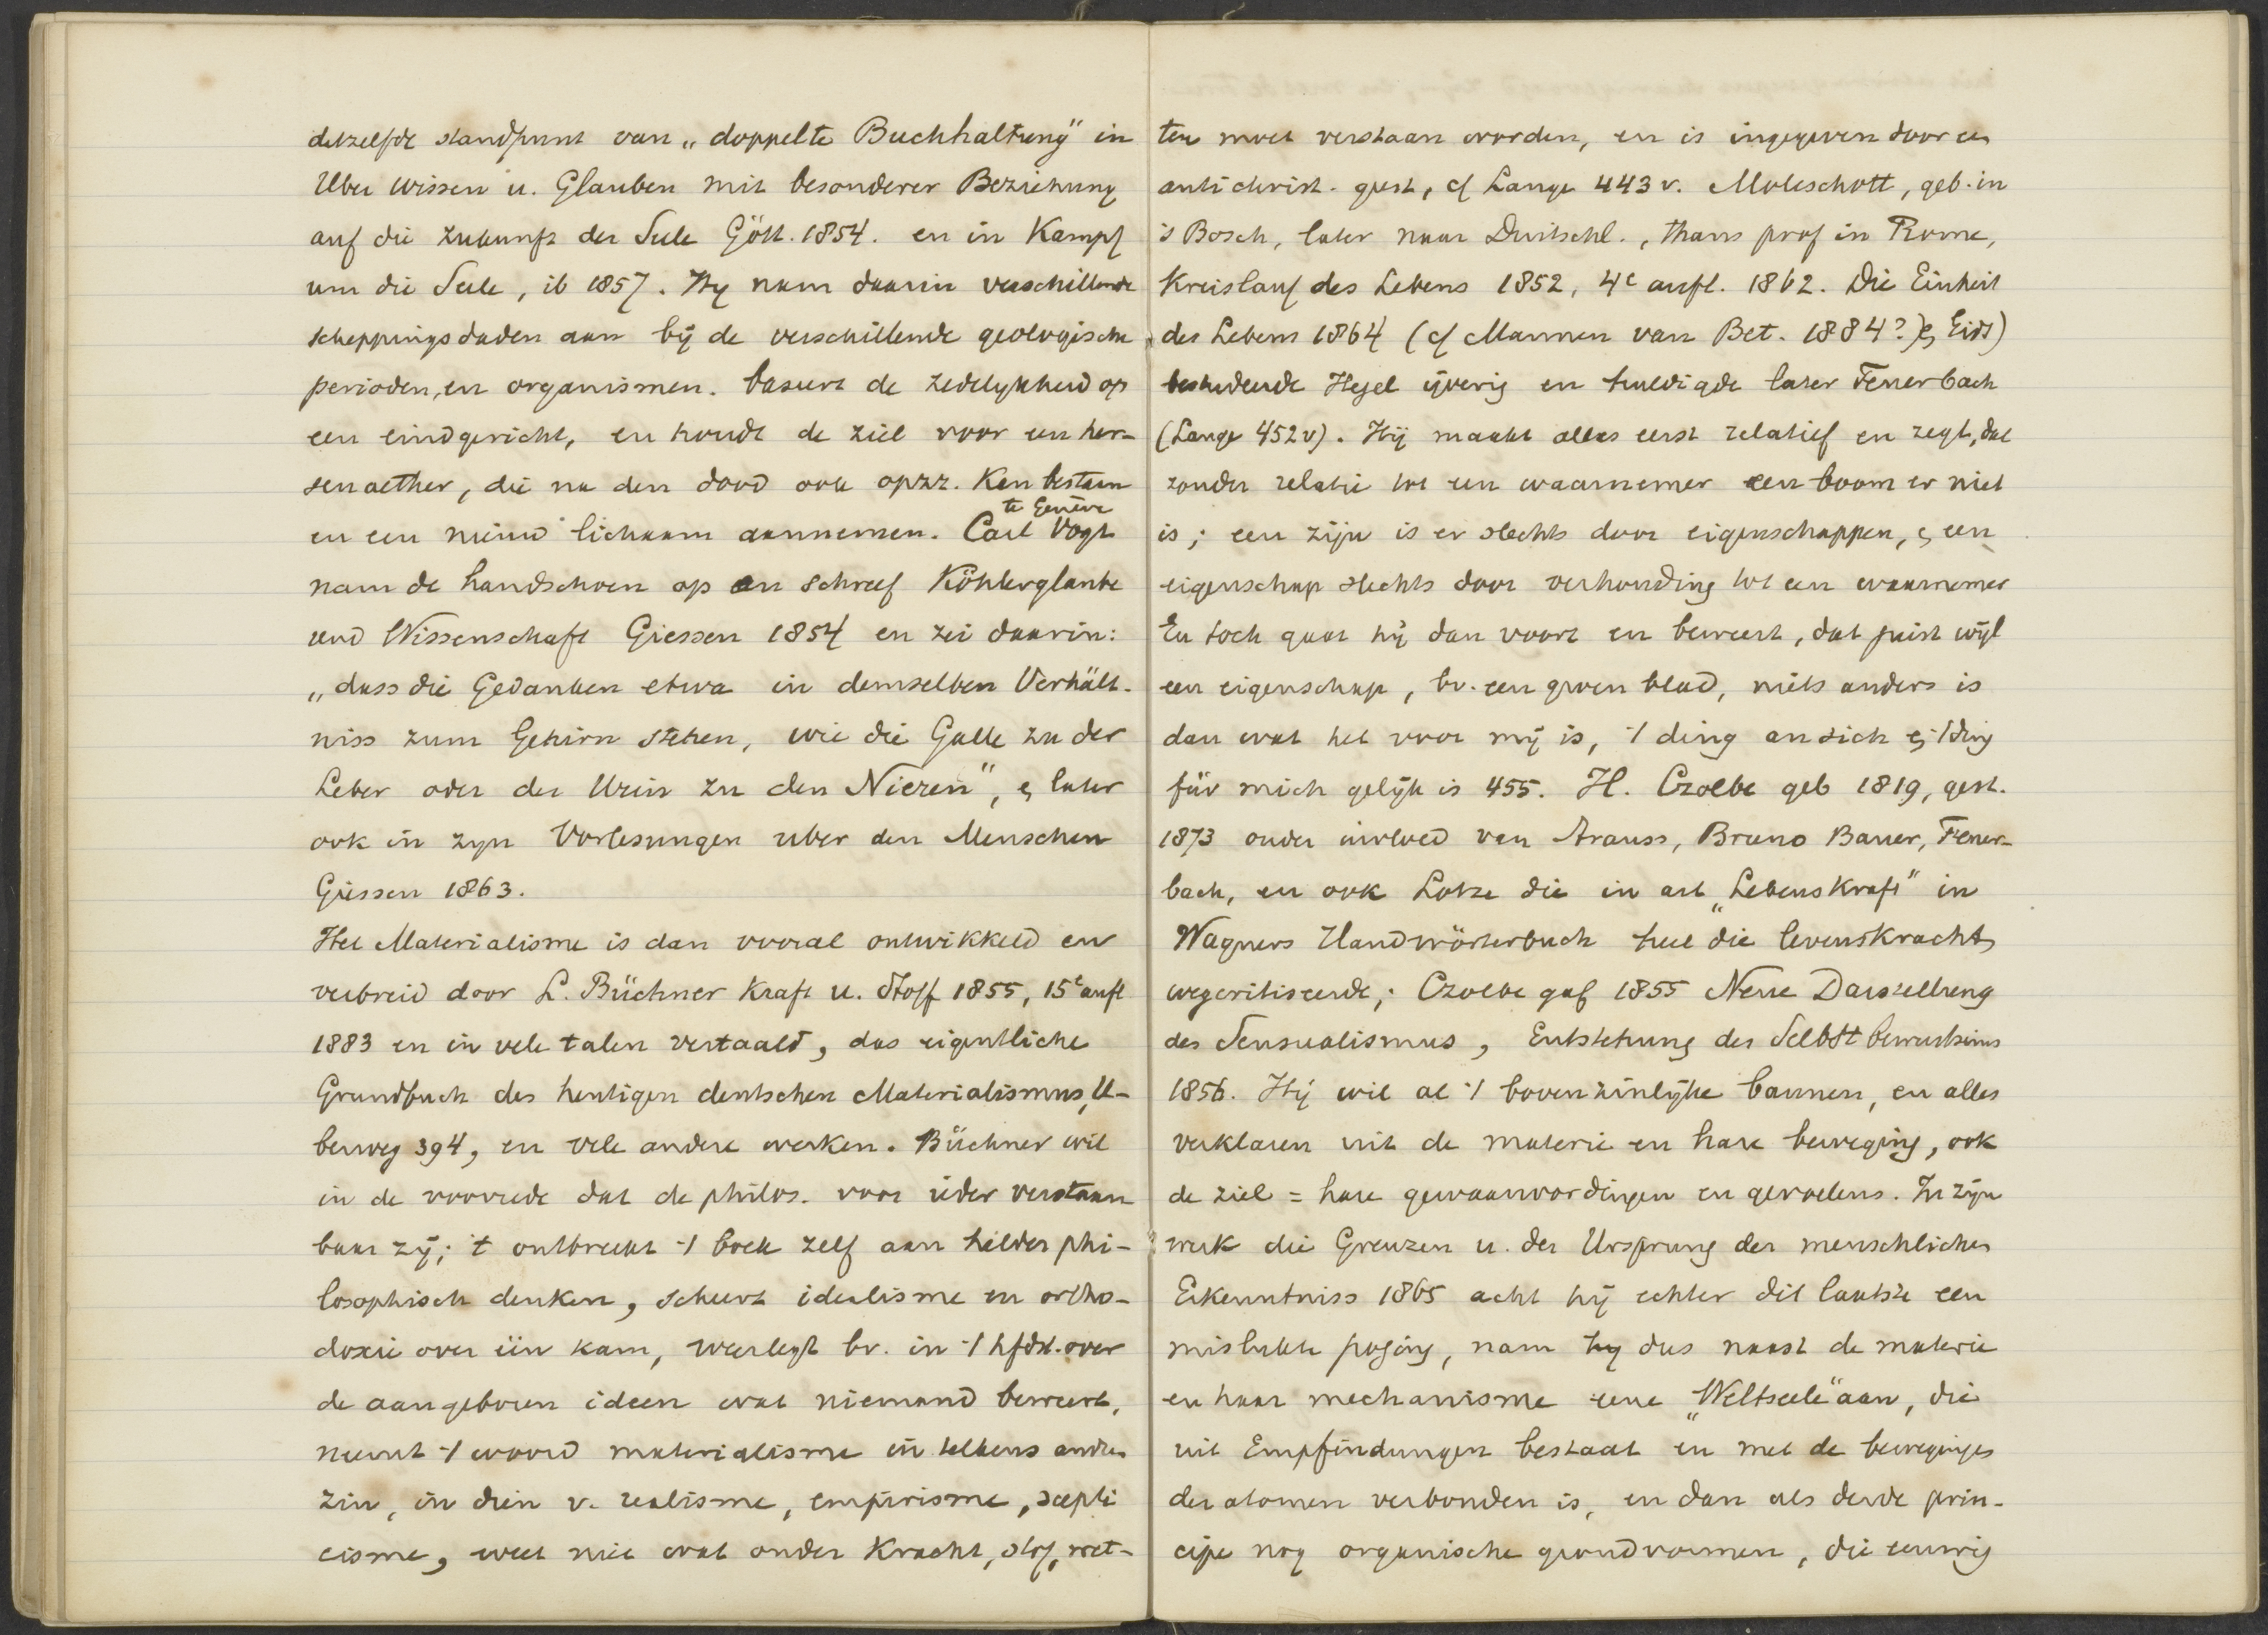 detzelfde standpunt van „doppelte Buchhaltung" in
Uber Wissen u. Glauben mit besonderer Beziehung
auf die Zukunft der Seele Gött. 1854. en in Kampf
um die Seele, ib 1857. Hy nam daarin verschillende
scheppingsdaden aan bij de verschillende geologische
perioden, en organismen. baseert de zedelykheid op
een eindgericht, en houdt de ziel voor een her-
senaether, die na den dood ook opzz. kan bestaan
te Genève
en een nieuw lichaam aannemen. Carl Vogt
nam de handschoen op en schreef Köhlerglaube
und Wissenschaft Giessen 1854 en zei daarin:
„dass die Gedanken etwa in demselben Verhält-
niss zum Gehirn stehen, wie die Galle zu der
Leber oder der Urin zu den Nieren", & later
ook in zyn Vorlesungen uber den Menschen
Giessen 1863.
Het Materialisme is dan vooral ontwikkeld en
verbreid door L. Büchner Kraft u. Stoff 1855, 15e aufl
1883 en in vele talen vertaald, das eigentliche
Grundbuch des heutigen deutschen Materialismus, U-
berweg 394, en vele andere werken. Büchner wil
in de voorrede dat de philos. voor ieder verstaan
baar zij; 't ontbreekt -/ boek zelf aan helder phi-
losophisch denken, scheert idealisme en ortho-
doxie over één kam, weerlegt bv. in -/ hfdst. over
de aangeboren ideen wat niemand beweert,
neemt -/ woord materialisme in telkens andren
zin, in dien v. realisme, empirisme, scepti
cisme, weet niet wat onder Kracht, stof, wet-
ten moet verstaan worden, en is ingegeven door een
antichrist. geest, cf Lange 443 v. Moleschott, geb. in
's Bosch, later naar Duitschl., thans prof in Rome,
Kreislauf des Lebens 1852, 4e aufl. 1862. Die Einheit
des Lebens 1864 (cf Mannen van Bet. 1884?) & Eids)
bestudeerde Hegel ijverig en huldigde later Feuerbach
(Lange 452v). Hij maakt alles eerst relatief en zegt, dat
zonder relatie tot een waarnemer een boom er niet
is; een zijn is er slechts door eigenschappen, & een
eigenschap slechts door verhouding tot een waarnemer
En toch gaat hij dan voort en beweert, dat juist wijl
een eigenschap, bv. een groen blad, niets anders is
dan wat het voor mij is, -/ ding an sich & -/ ding
für mich gelijk is 455. H. Czolbe geb 1819, gest.
1873 onder invloed van Strauss, Bruno Bauer, Feuer-
bach, en ook Lotze die in art „Lebenskraft" in
Wagners Handwörterbuch heel die levenskracht
wegcritiseerde; Czolbe gaf 1855 Neue Darstellung
des Sensualismus, Entstehung des Selbstbewustseins
1856. Hij wil al -/ bovenzinlijke bannen, en alles
verklaren uit de materie en hare beweging, ook
de ziel = hare gewaarwordingen en gevoelens. In zijn
werk die Grenzen u. der Ursprung der menschlichen
Erkenntniss 1865 acht hij echter dit laatste een
mislukte poging, nam hy dus naast de materie
en haar mechanisme eene „Weltseele" aan, die
uit Empfindungen bestaat en met de bewegingen
der atomen verbonden is, en dan als derde prin-
cipe nog organische grondvormen, die eeuwig